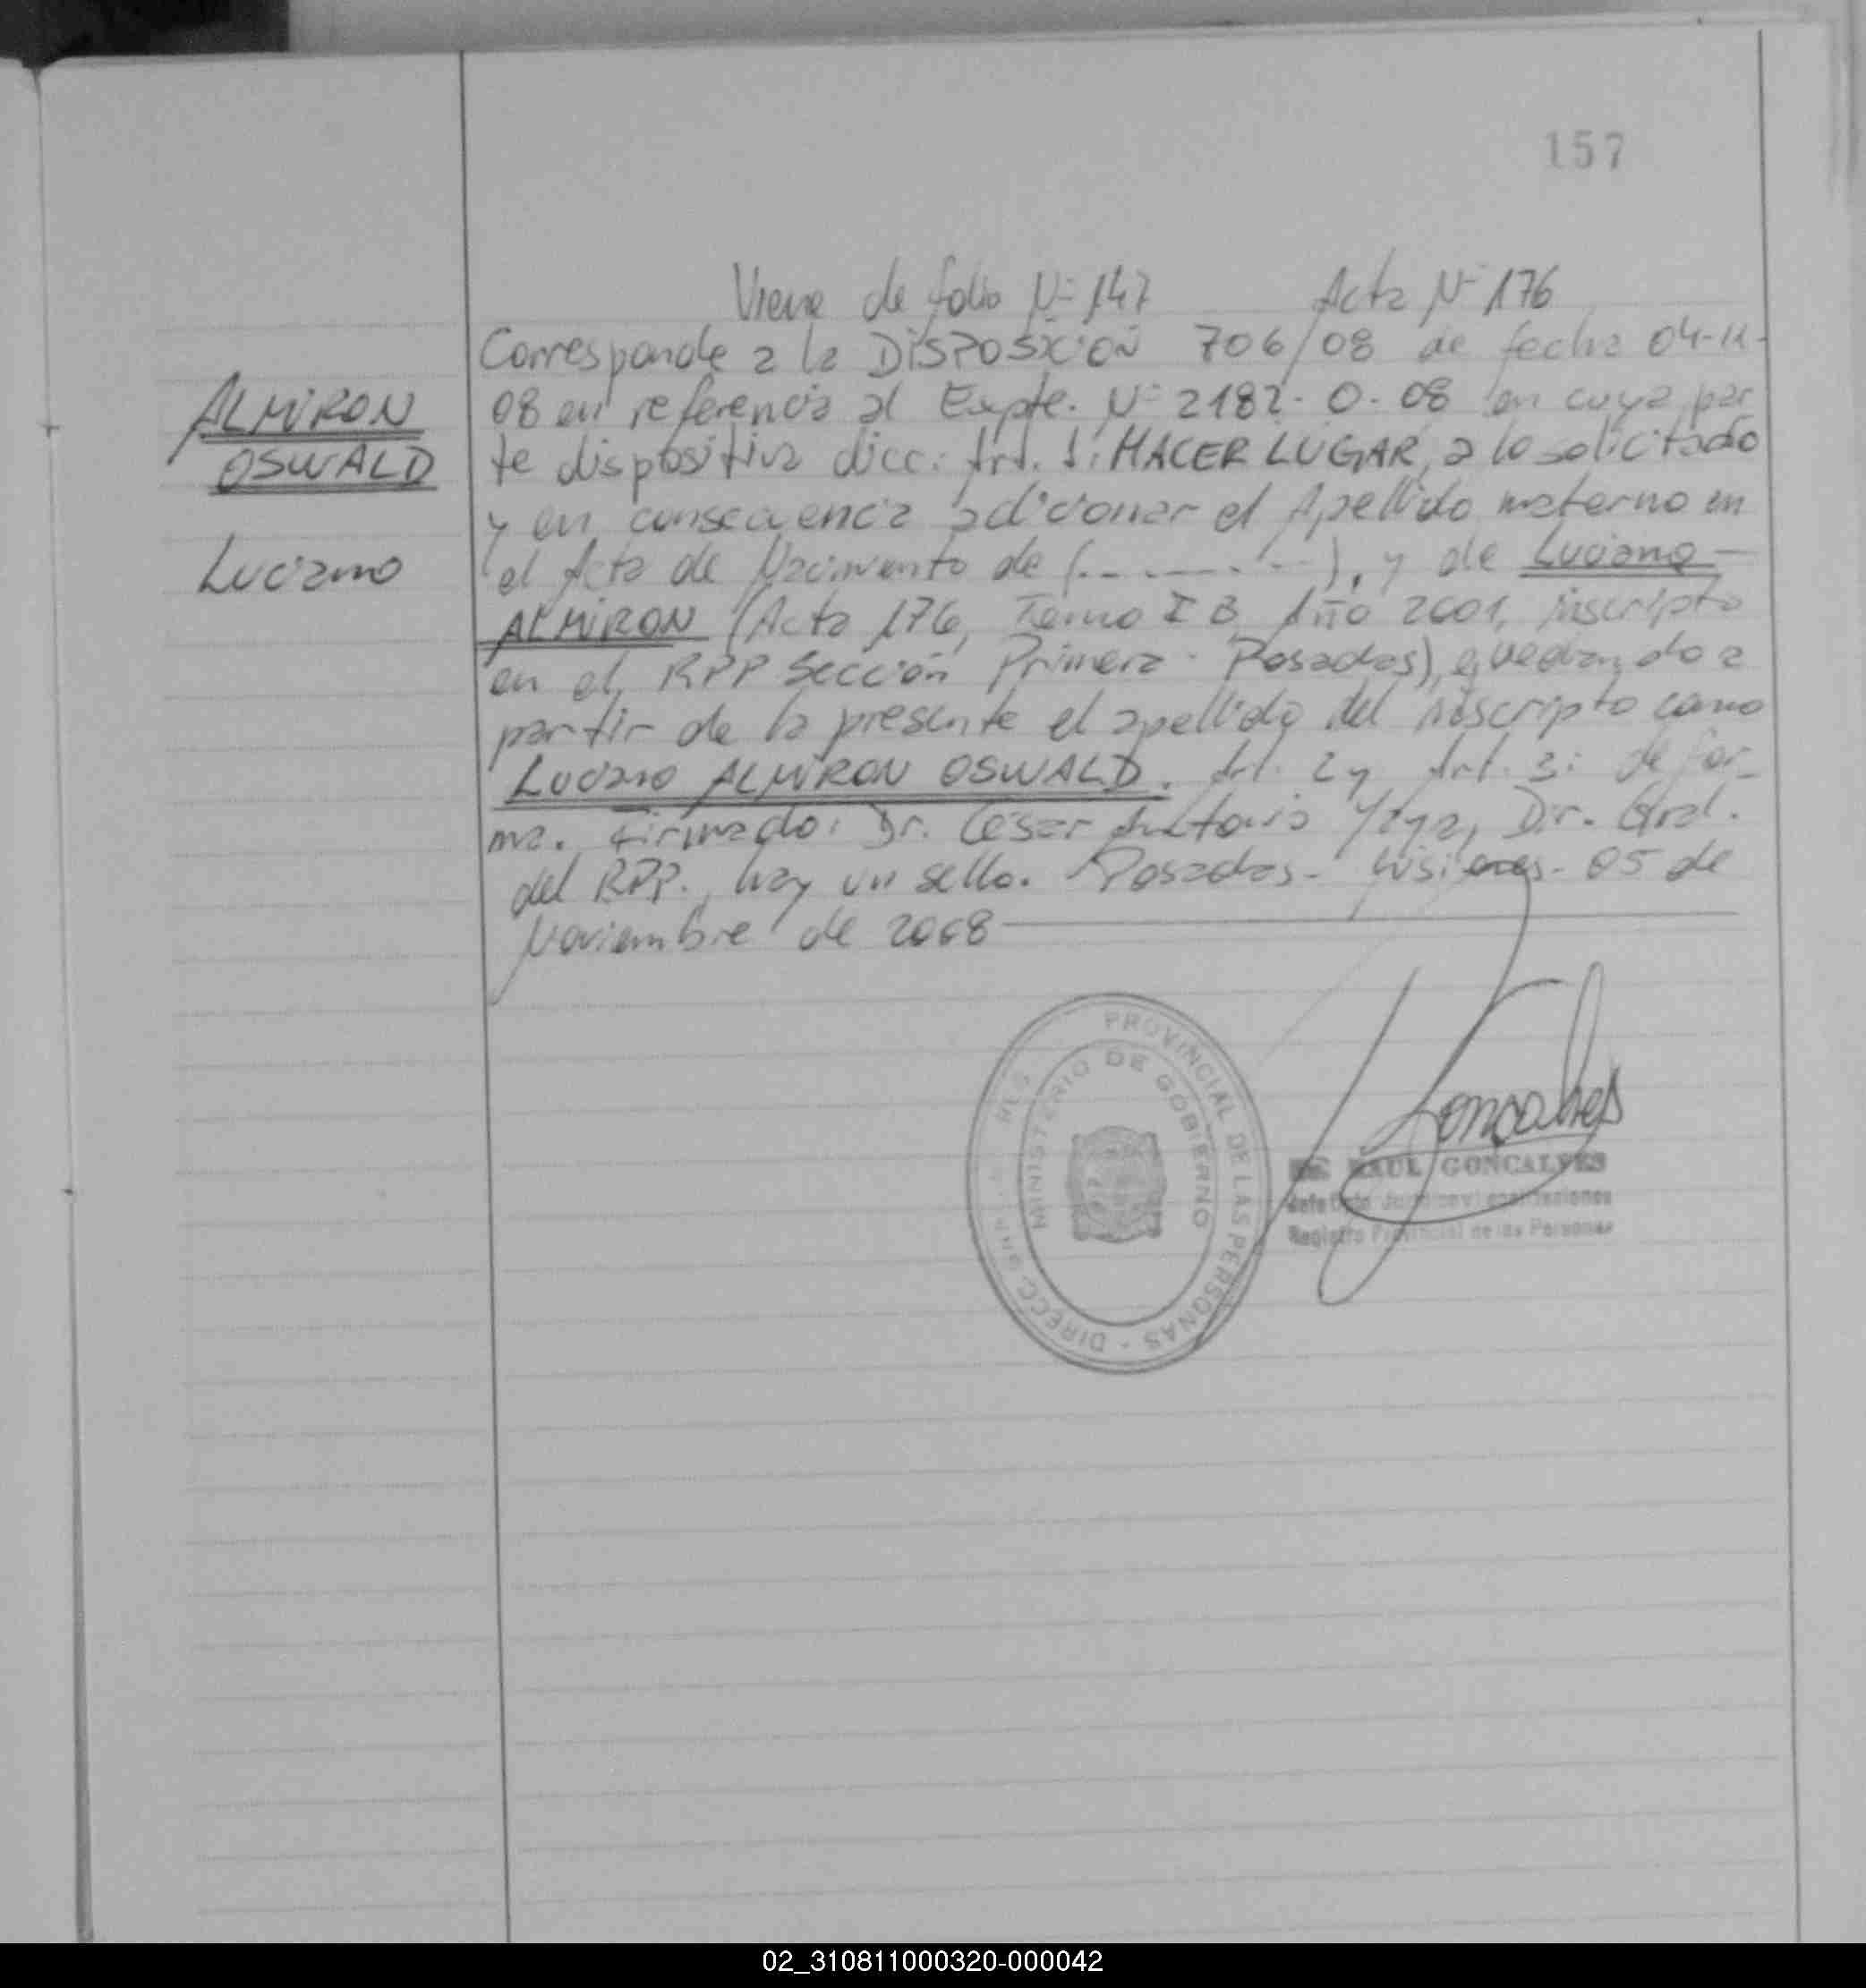 157
Viene de folio Nº 147 Acta Nº 176
Corresponde a la DISPOSICION 706/08 de fecha 04-11-
08 en referencia al Expte. Nº 2182-O-08 en cuya par
te dispositiva dice: Art. 1: HACER LUGAR, a lo solicitado
y en consecuencia adicionar el Apellido materno en
el Acta de Nacimiento de (.........), y de Luciano
ALMIRON (Acta 176, Tomo I B Año 2001, inscripto
en el RPP Sección Primera - Posadas), quedando a
partir de la presente el apellido del inscripto como
Luciano ALMIRON OSWALD. Art. 2 y Art. 3: de for-
ma. Firmado: Dr. César Antonio Yaya, Dir. Gral.
del RPP., hay un sello. Posadas - Misiones - 05 de
Noviembre de 2008
ALMIRON
OSWALD
Luciano
PROVINCIAL DE LAS PERSONAS - DIRECC.
MINISTERIO DE GOBIERNO
Goncalves
RAUL GONCALVES
Registro Provincial de las Personas
02_310811000320-000042